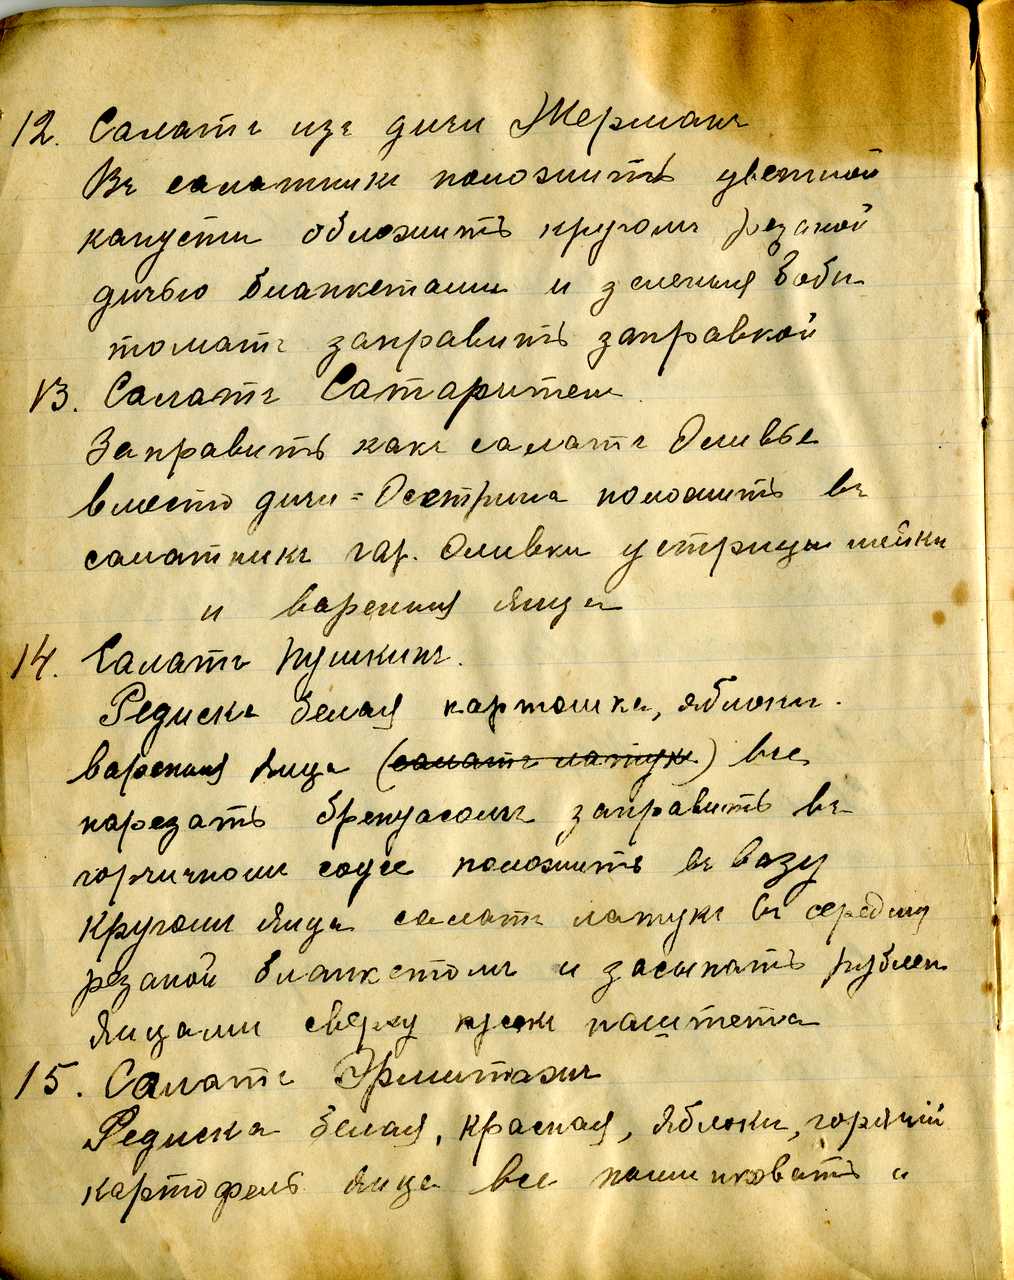 12. Салатъ изъ дичи Жерманъ
Въ салатникъ положить цветной
капусты обложить кругомъ резаной
дичью бланкетами и зеленыя бобы
томатъ заправить заправкой
13. Салатъ
Заправить какъ салатъ Оливье
вместо дичи = Осетрина положить въ
салатникъ гар. Оливки устрицы шейки
и вареныя яица
14. Салатъ Пушкинъ.
Редиска белая картошка, яблоки.
вареныя яица (салатъ латукъ) все
нарезать заправить въ
горчичномъ соусе положить въ вазу
кругомъ яица салатъ латукъ въ середину
резаной бланкетомъ и засыпать рублен
яицами сверху куски паштета
15. Салатъ Эрмитажъ
Редиска белая, красная, яблоки, горячий
картофель яица все нашинковать и